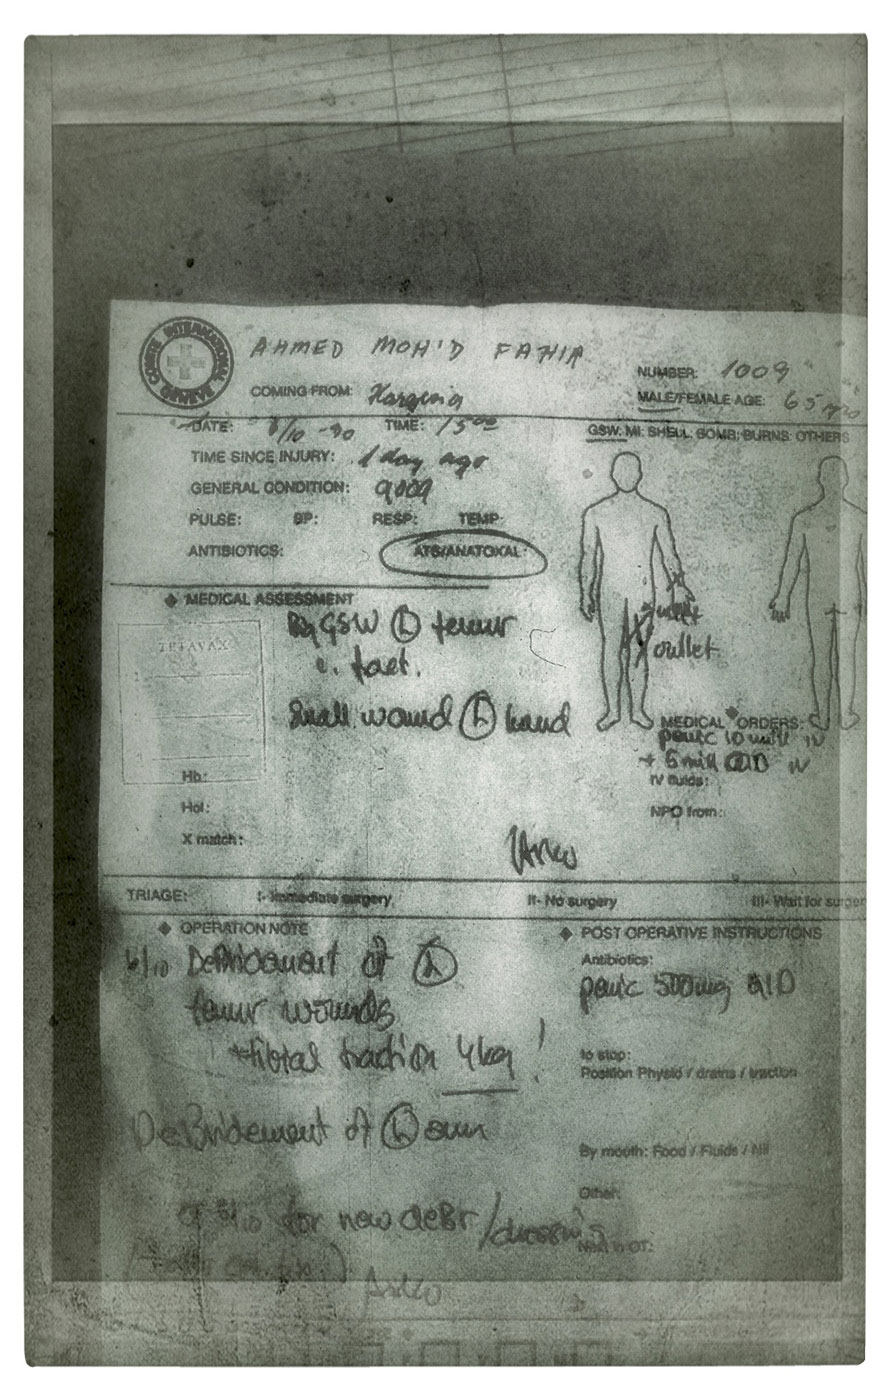 COMITE INTERNATIONAL GENEVE
AHMED MOH'D FAHIR
NUMBER: 1009
COMING FROM:
MALE/FEMALE AGE: 65
DATE: /10 -90 TIME: 15 00
GSW: MI: SHELL: BOMB: BURNS: OTHERS
TIME SINCE INJURY: 1 day ago
GENERAL CONDITION: good
PULSE: BP: RESP: TEMP:
ANTIBIOTICS: ATS/ANATOXAL:
MEDICAL ASSESSMENT
GSW L femur
TETAVAX
inlet
outlet
c. fact.
Small wound L hand
MEDICAL ORDERS:
penic 10 mill IV
+ 5 mill QID IV
Hb:
IV fluids:
Hct:
NPO from:
X match:
TRIAGE: I- Immediate surgery, II- No surgery III- Wait for surger
OPERATION NOTE
POST OPERATIVE INSTRUCTIONS
/10 Debridement of L
Antibiotics:
femur wounds
penic 500mg QID
+tibial traction 4kg!
to stop:
Position Physio / drains / traction
Debridement of L
By mouth: Food / Fluids / Nil
Other:
for new debr/dressing
Next in OT: